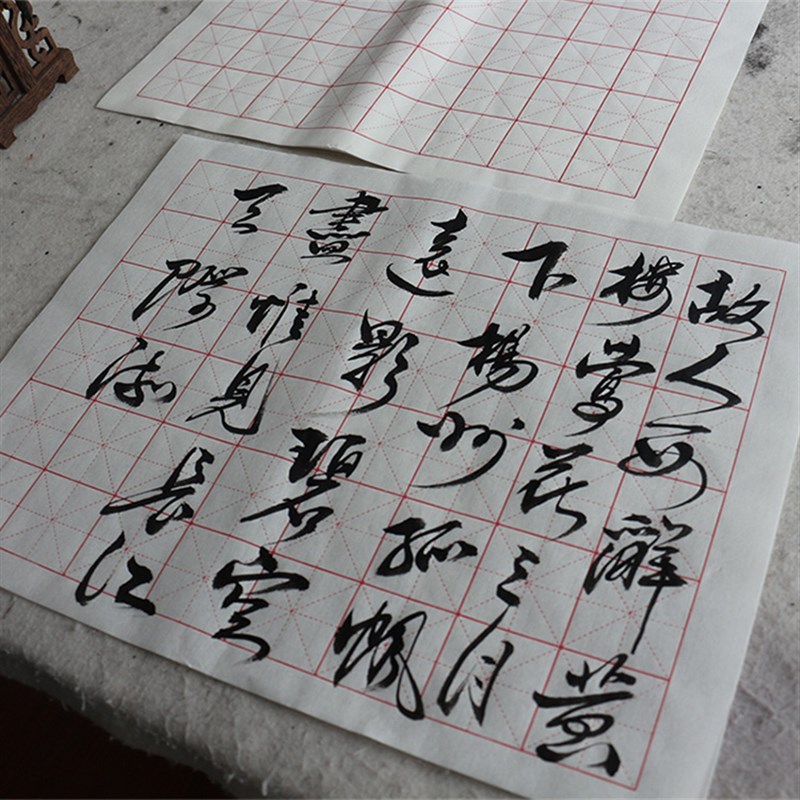 故人西辭黃
樓鶯花三月
下楊州孤帆
遠影碧空
盡惟見長江
天際流